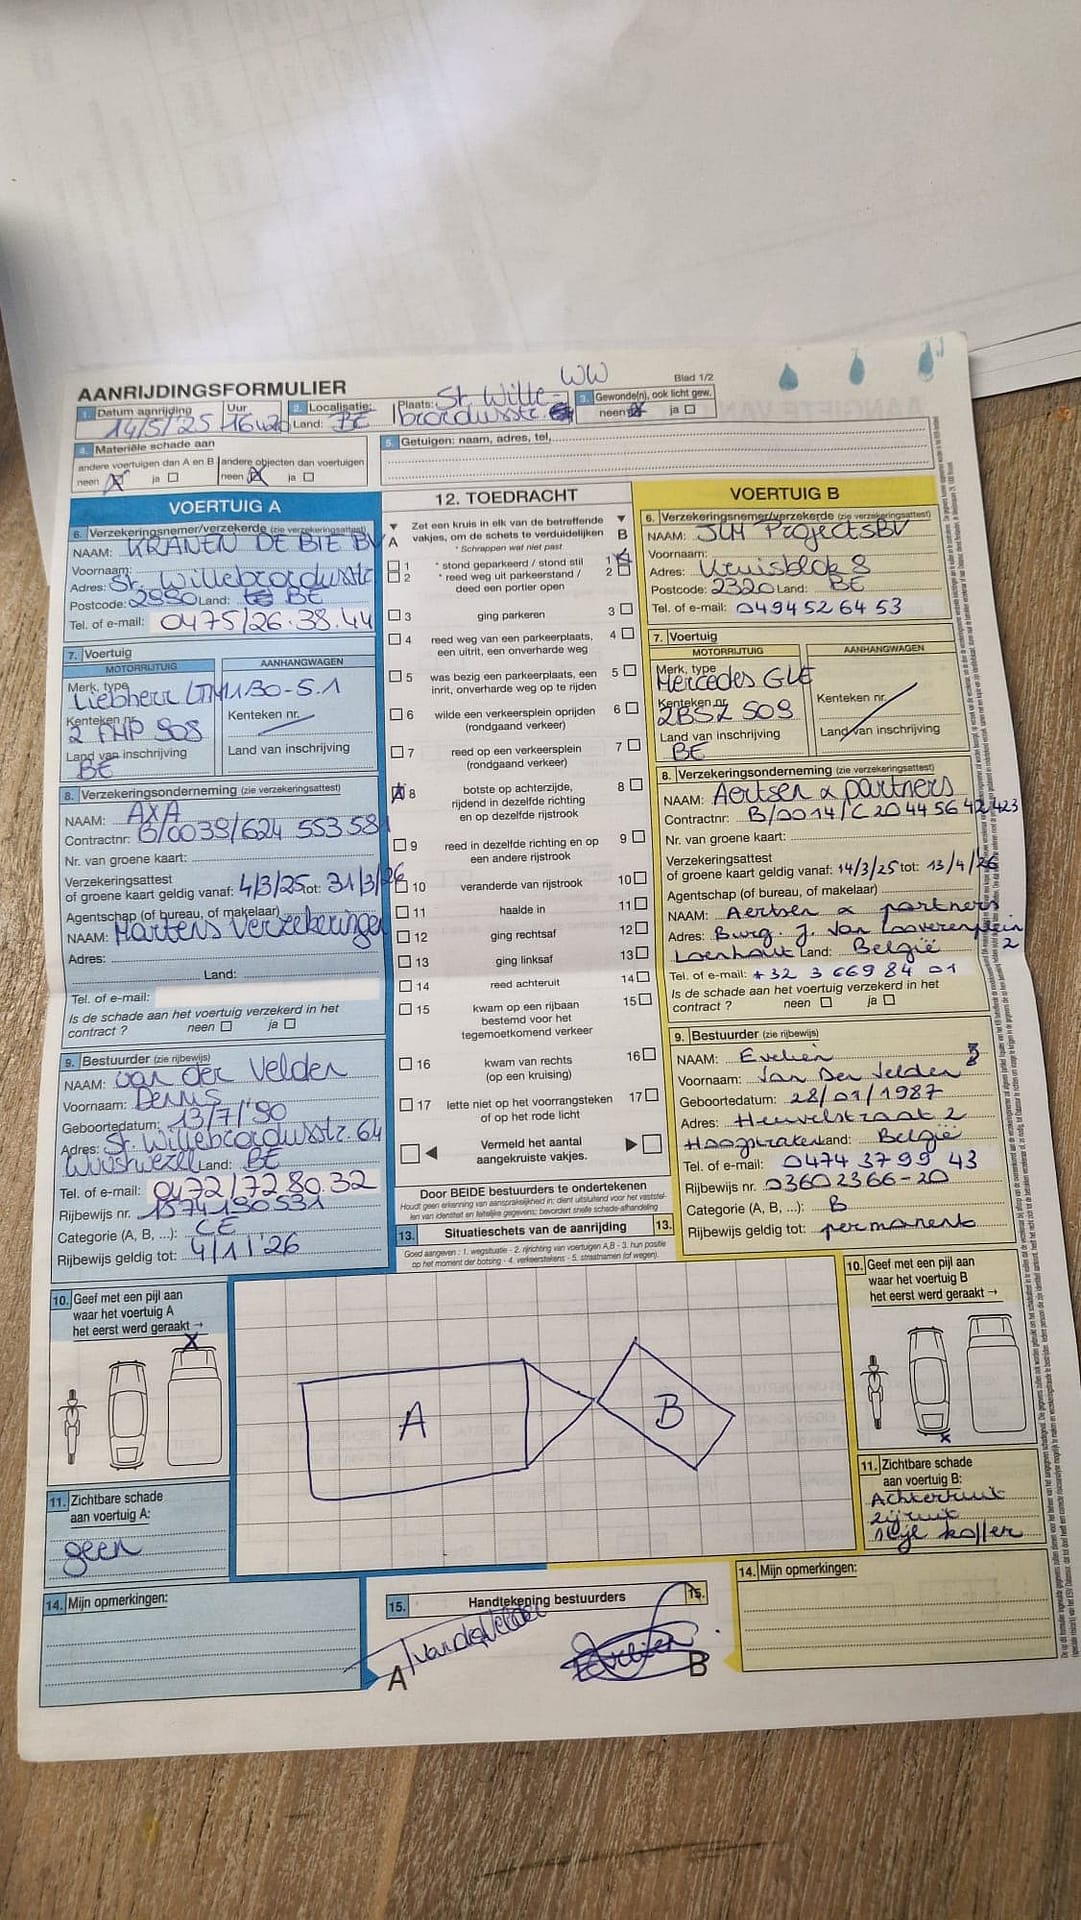 WW
Blad 1/2
AANRIJDINGSFORMULIER
1. Datum aanrijding
14/5/25
Uur
16u20
2. Localisatie:
Land: BE
Plaats: St. Wille-
brordusstr.
3. Gewonde(n), ook licht gew.
neen ja
4. Materiële schade aan
andere voertuigen dan A en B
neen ja
andere objecten dan voertuigen
neen ja
5. Getuigen: naam, adres, tel,
VOERTUIG A
6. Verzekeringsnemer/verzekerde (zie verzekeringsattest)
NAAM: KRANEN DE BIE BV
Voornaam:
Adres: St. Willebrordusstr
Postcode: 2990 Land: BE
Tel. of e-mail: 0475/26.38.44
7. Voertuig
MOTORRIJTUIG
Merk, type
Liebherr LTM1130-5.1
Kenteken nr.
2 FHP 908
Land van inschrijving
BE
AANHANGWAGEN
Kenteken nr.
Land van inschrijving
8. Verzekeringsonderneming (zie verzekeringsattest)
NAAM: AXA
Contractnr: B/0039/624 553 581
Nr. van groene kaart:
Verzekeringsattest
of groene kaart geldig vanaf: 4/3/25 tot: 31/3/26
Agentschap (of bureau, of makelaar)
NAAM: Martens Verzekeringen
Adres:
Land:
Tel. of e-mail:
Is de schade aan het voertuig verzekerd in het
contract ? neen ja
9. Bestuurder (zie rijbewijs)
NAAM: van der Velden
Voornaam: Dennis
Geboortedatum: 13/7/'90
Adres: St. Willebrordusstr. 64
Wuustwezel Land: BE
Tel. of e-mail: 0472/72.80.32
Rijbewijs nr. 1574190531
Categorie (A, B, ...): CE
Rijbewijs geldig tot: 4/11'26
10. Geef met een pijl aan
waar het voertuig A
het eerst werd geraakt →
X
11. Zichtbare schade
aan voertuig A:
geen
14. Mijn opmerkingen:
12. TOEDRACHT
Zet een kruis in elk van de betreffende
A vakjes, om de schets te verduidelijken B
* Schrappen wat niet past
1 * stond geparkeerd / stond stil 1
2 * reed weg uit parkeerstand / 2
deed een portier open
3 ging parkeren 3
4 reed weg van een parkeerplaats, 4
een uitrit, een onverharde weg
5 was bezig een parkeerplaats, een 5
inrit, onverharde weg op te rijden
6 wilde een verkeersplein oprijden 6
(rondgaand verkeer)
7 reed op een verkeersplein 7
(rondgaand verkeer)
8 botste op achterzijde, 8
rijdend in dezelfde richting
en op dezelfde rijstrook
9 reed in dezelfde richting en op 9
een andere rijstrook
10 veranderde van rijstrook 10
11 haalde in 11
12 ging rechtsaf 12
13 ging linksaf 13
14 reed achteruit 14
15 kwam op een rijbaan 15
bestemd voor het
tegemoetkomend verkeer
16 kwam van rechts 16
(op een kruising)
17 lette niet op het voorrangsteken 17
of op het rode licht
Vermeld het aantal
aangekruiste vakjes.
Door BEIDE bestuurders te ondertekenen
Houdt geen erkenning van aansprakelijkheid in; dient uitsluitend voor het vaststel-
len van identiteit en feitelijke gegevens; bevordert snelle schade-afhandeling
13. Situatieschets van de aanrijding 13.
Goed aangeven : 1. wegsituatie - 2. rijrichting van voertuigen A,B - 3. hun positie
op het moment der botsing - 4. verkeerstekens - 5. straatnamen (of wegen).
A
B
15. Handtekening bestuurders 15.
A
B
VOERTUIG B
6. Verzekeringsnemer/verzekerde (zie verzekeringsattest)
NAAM: JLM Projects BV
Voornaam:
Adres: Kruisblok 8
Postcode: 2320 Land: BE
Tel. of e-mail: 0494526453
7. Voertuig
MOTORRIJTUIG
Merk, type
Mercedes GLE
Kenteken nr.
2BSZ 509
Land van inschrijving
BE
AANHANGWAGEN
Kenteken nr.
Land van inschrijving
8. Verzekeringsonderneming (zie verzekeringsattest)
NAAM: Aertsen & partners
Contractnr: B/0014/C 20 44 56 42/423
Nr. van groene kaart:
Verzekeringsattest
of groene kaart geldig vanaf: 14/3/25 tot: 13/4/26
Agentschap (of bureau, of makelaar)
NAAM: Aertsen & partners
Adres: Burg. J. Van Looverenplein 2
Loenhout Land: België
Tel. of e-mail: +32 3 669 84 01
Is de schade aan het voertuig verzekerd in het
contract ? neen ja
9. Bestuurder (zie rijbewijs)
NAAM: Evelien
Voornaam: Van Der Velden
Geboortedatum: 28/01/1987
Adres: Heuvelstraat 2
Hoogstraten Land: België
Tel. of e-mail: 0474 37 99 43
Rijbewijs nr. 03602366-20
Categorie (A, B, ...): B
Rijbewijs geldig tot: permanent
10. Geef met een pijl aan
waar het voertuig B
het eerst werd geraakt →
x
11. Zichtbare schade
aan voertuig B:
Achterruit
zijruit
stijl koffer
14. Mijn opmerkingen: